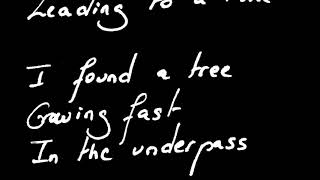 Leading to a
I found a tree
Growing fast
In the underpass